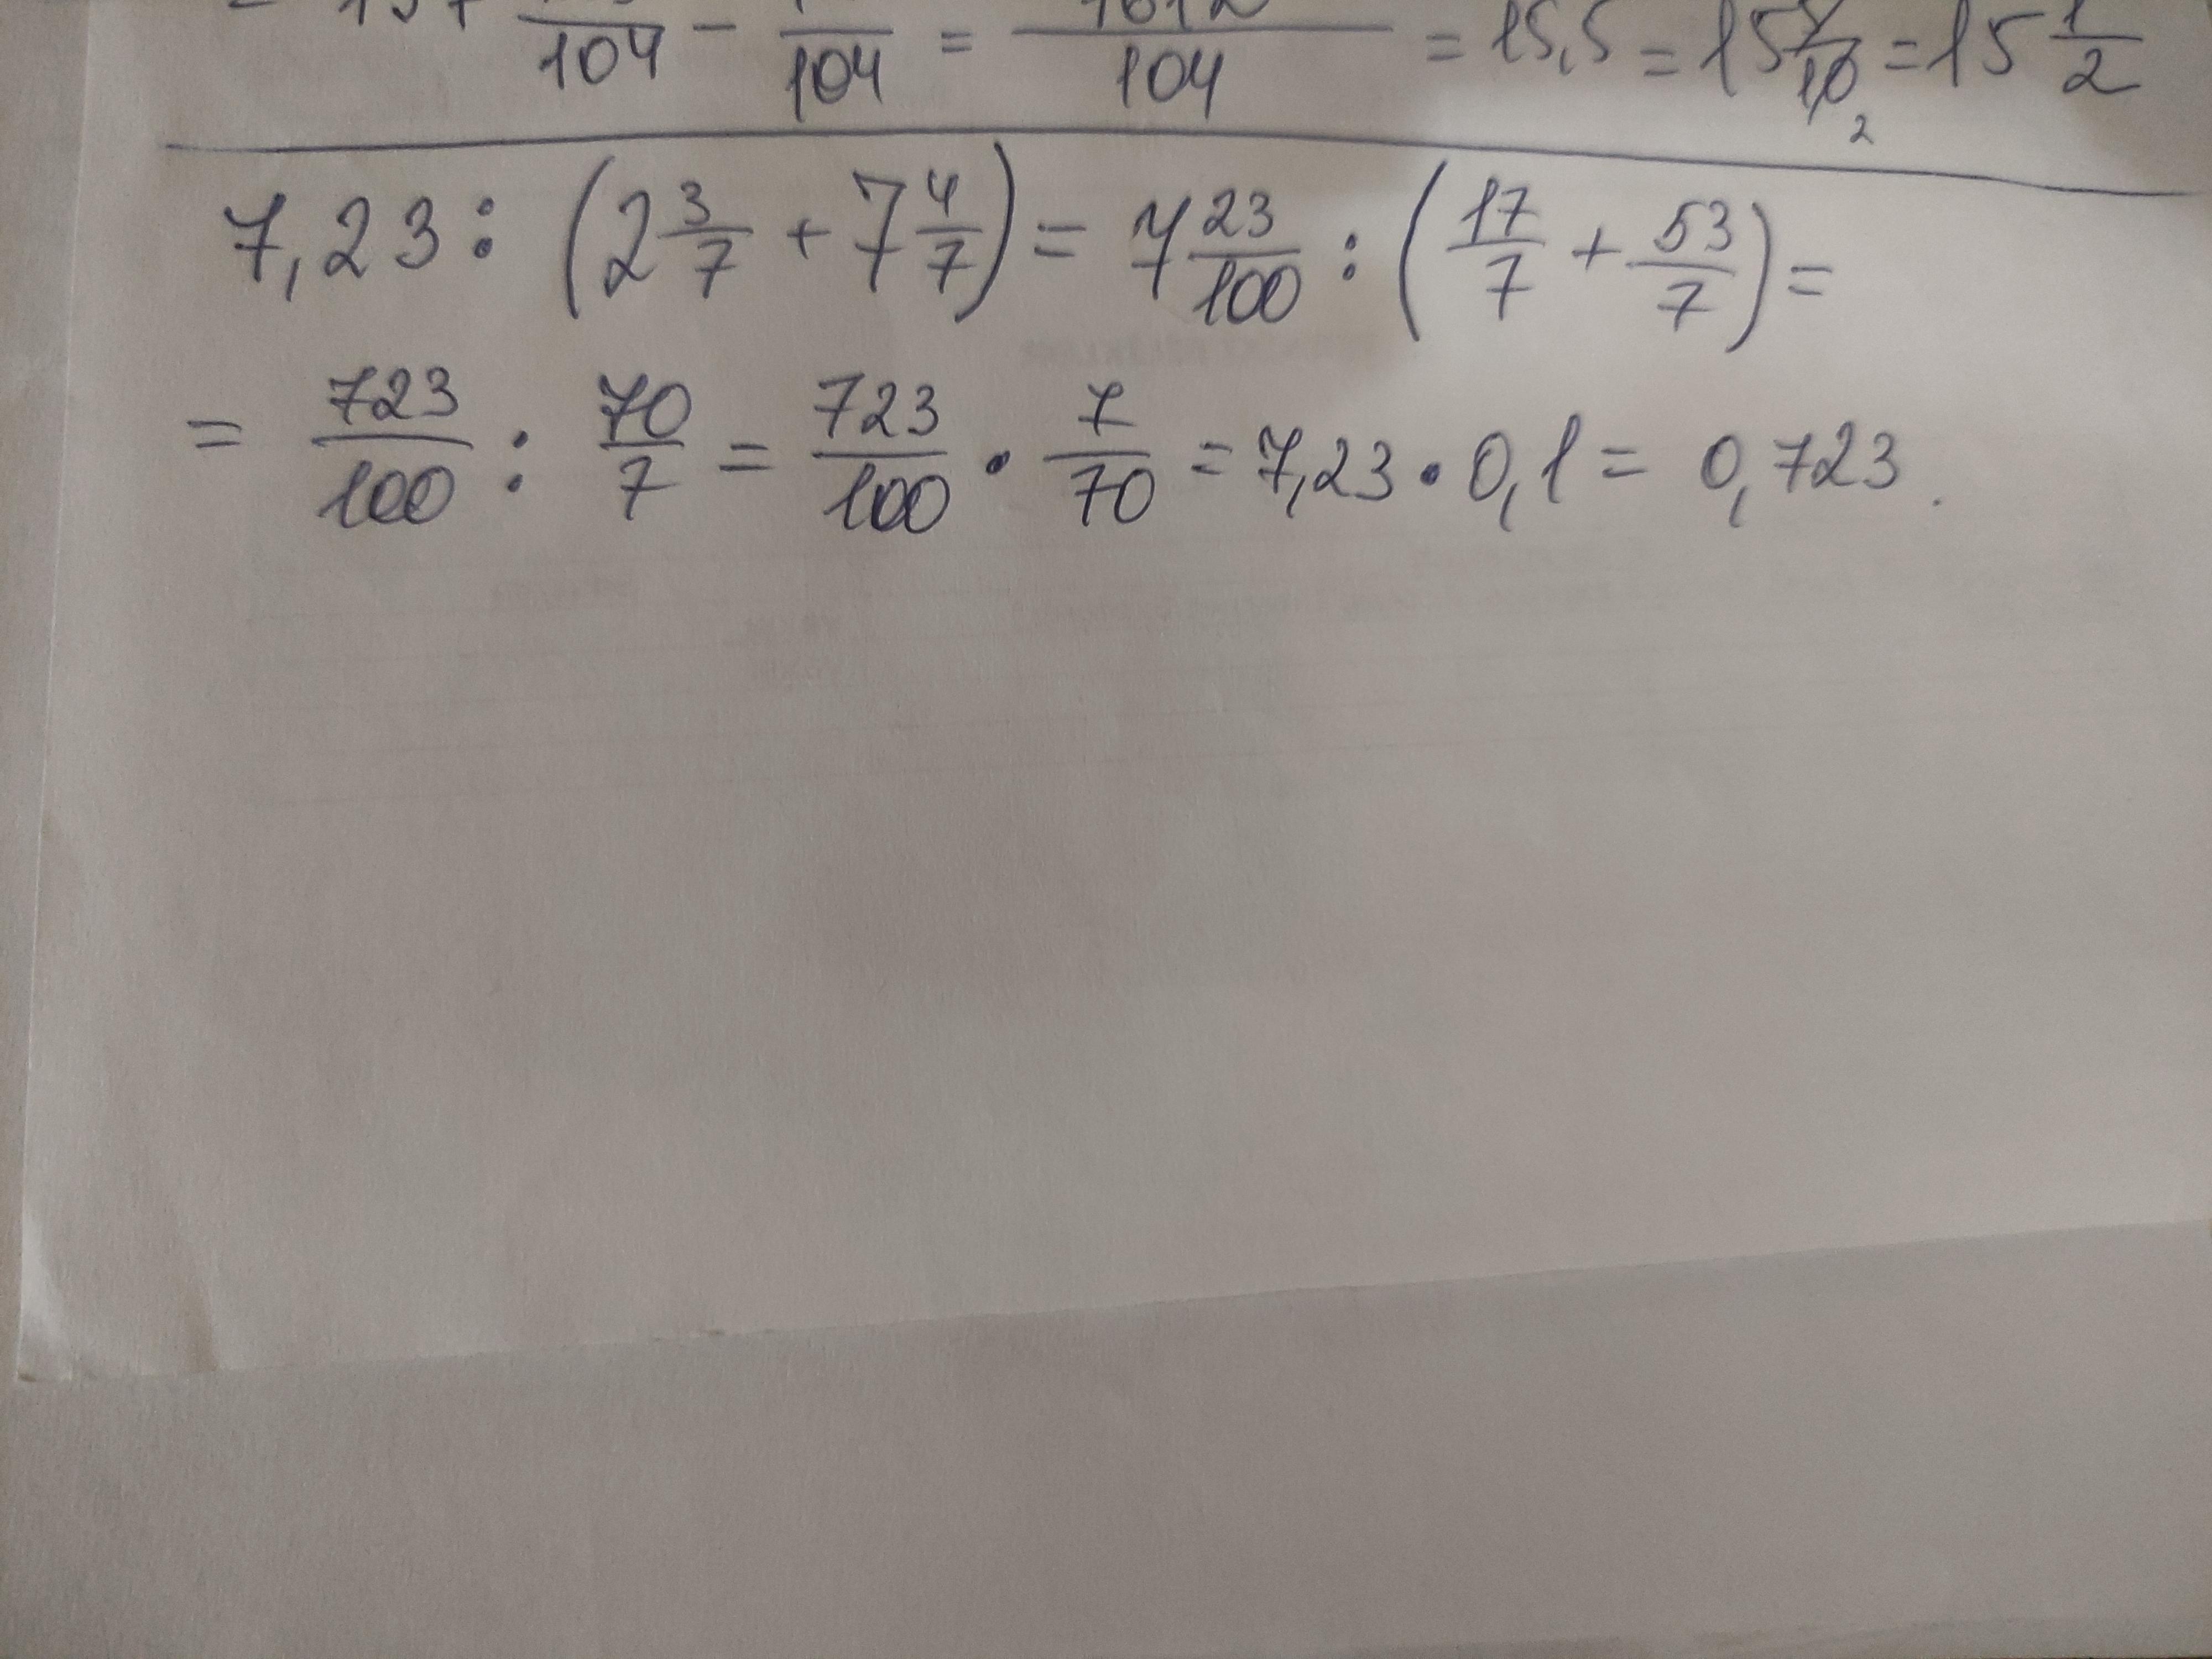 104 - 104 = 104 = 15,5 = 15 5/10 2 = 15 1/2
7,23 : (2 3/7 + 7 4/7) = 7 23/100 : (17/7 + 53/7) =
= 723/100 : 70/7 = 723/100 · 7/70 = 7,23 · 0,1 = 0,723.